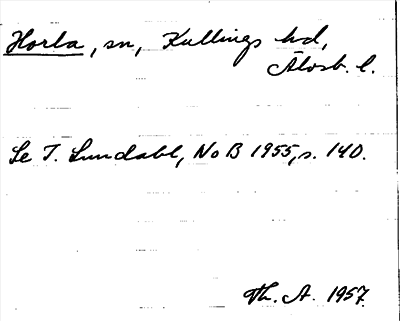 Horla, sn, Kullings hd,
Älvsb. l.
Se T. Lundahl, NoB 1955, s. 140.
Th. A. 1957.